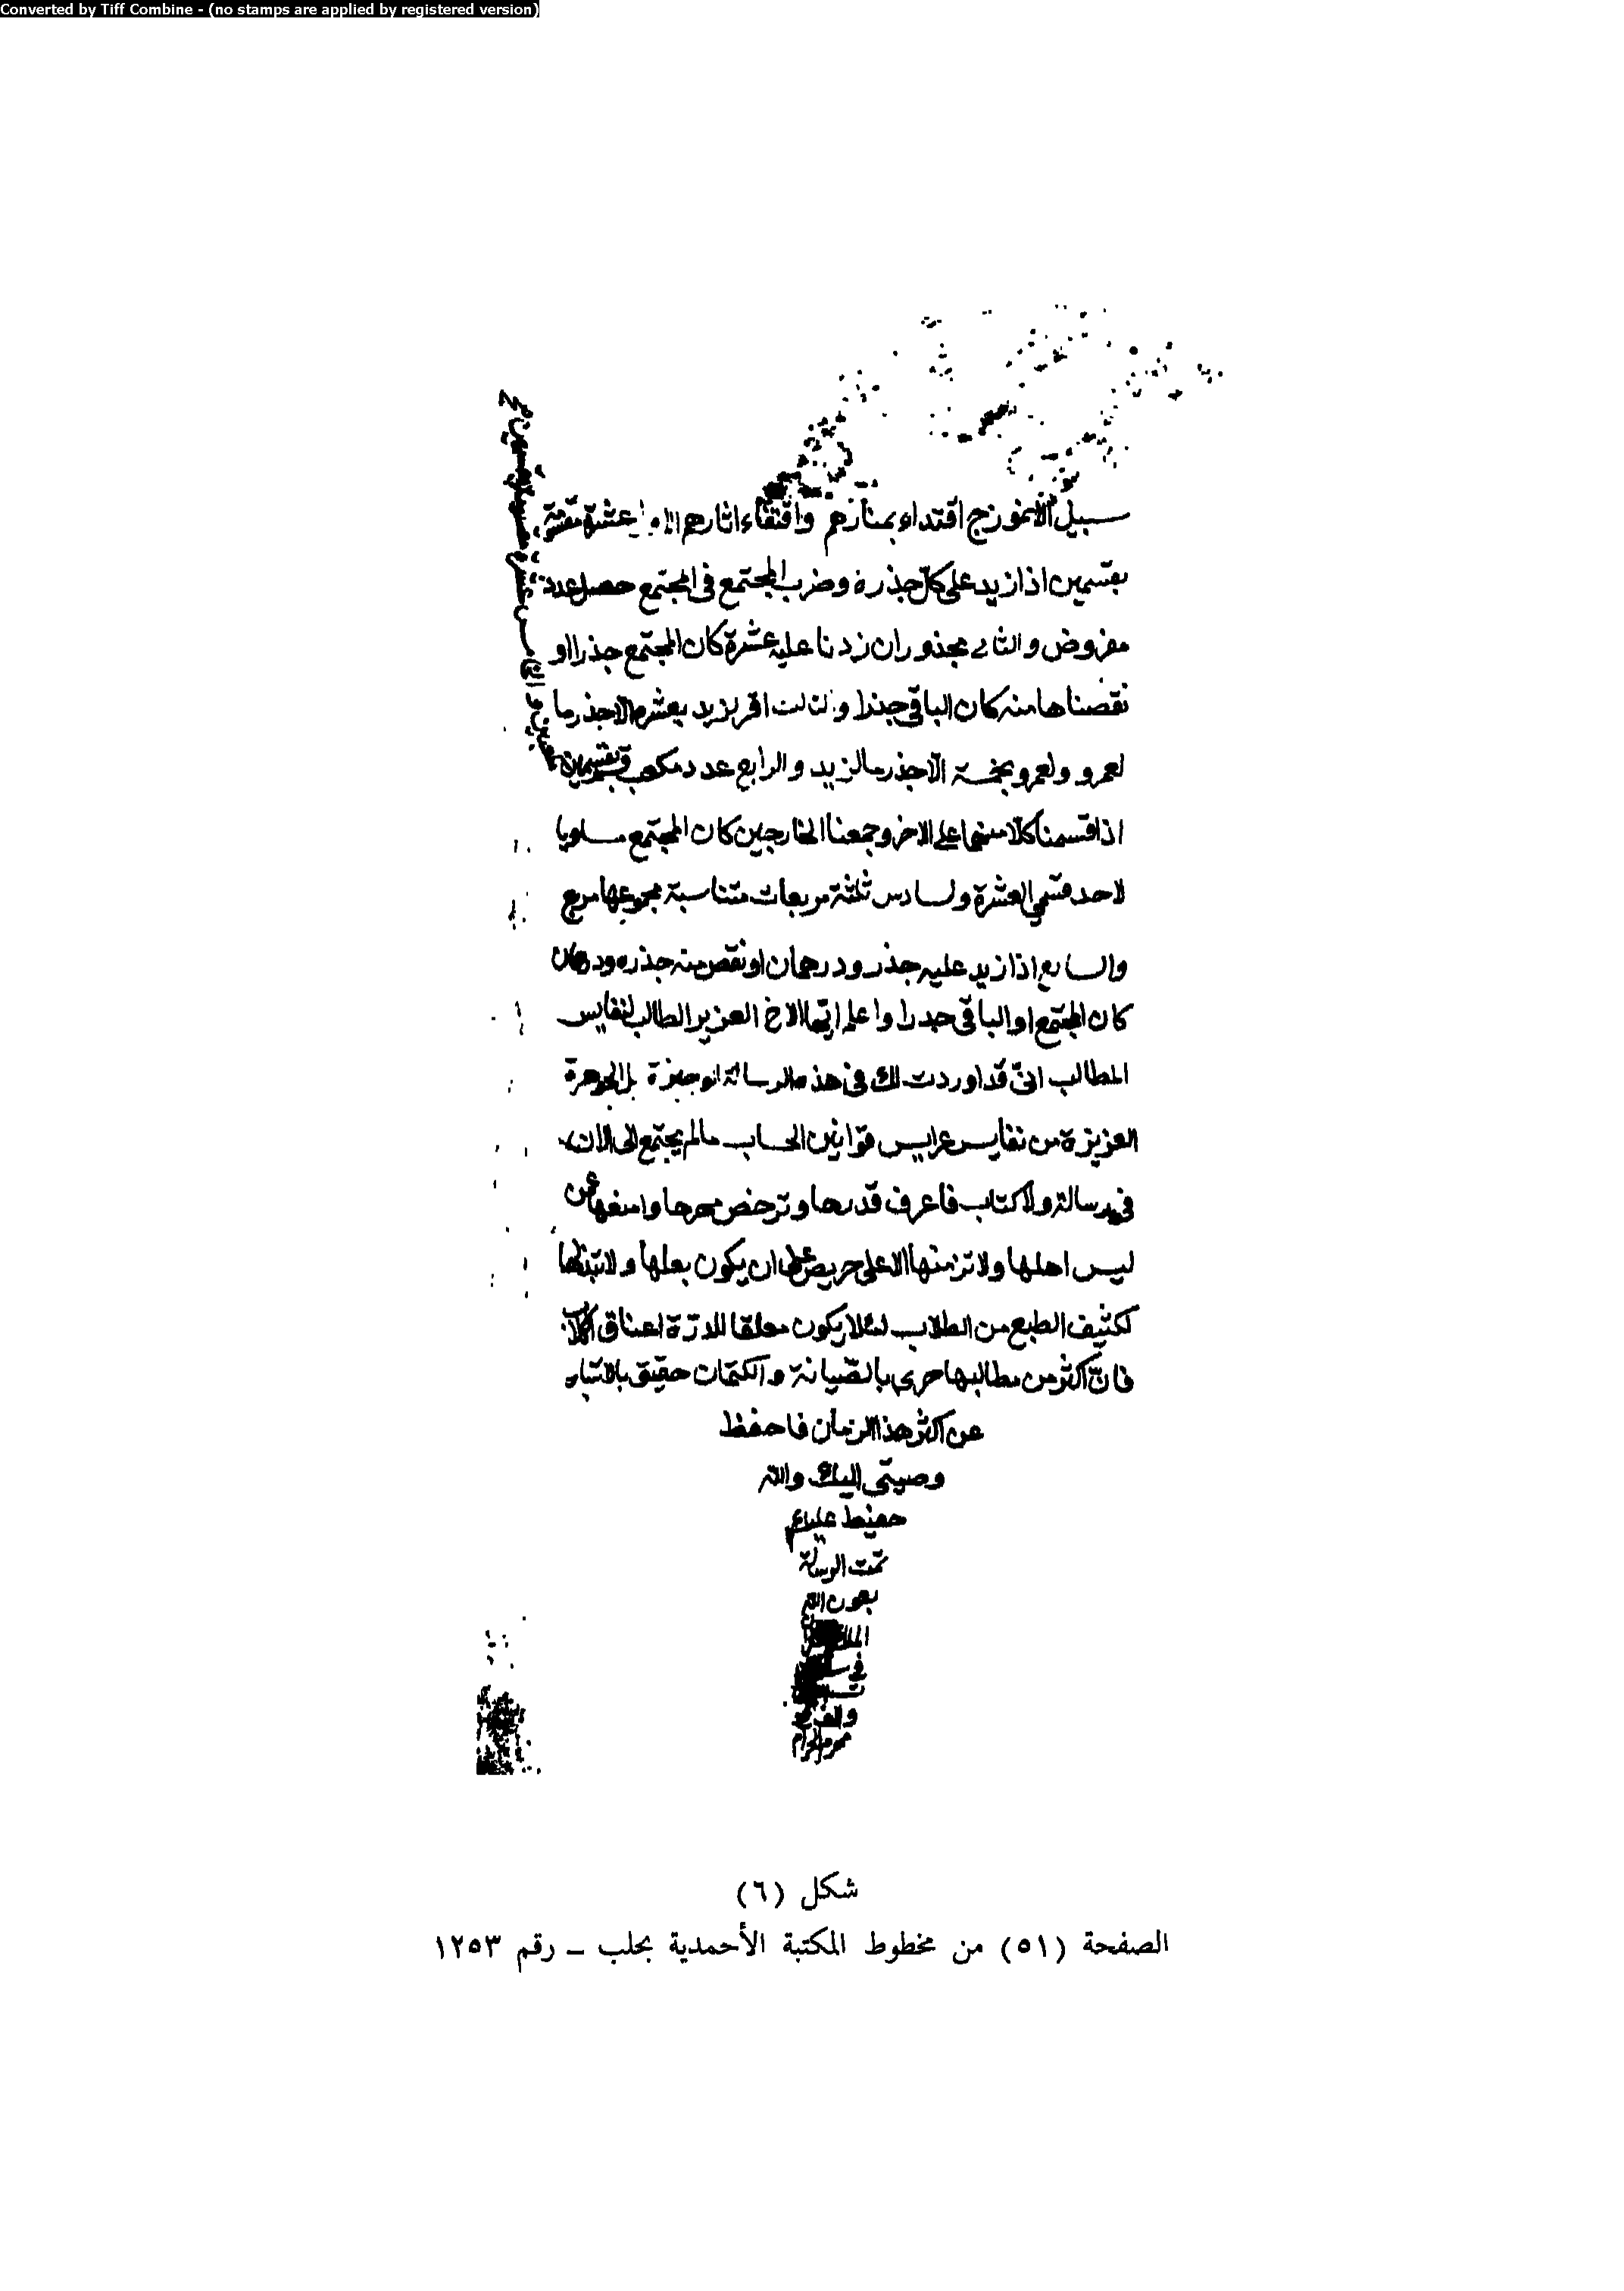 Converted by Tiff Combine - (no stamps are applied by registered version)
سبيل الانموزج اقتداء بمنارهم واقتفاء اثارهم عشرة مقسومة
بقسمين اذا زيد على كل جذره وضرب المجتمع فى المجتمع حصل عدد
مفروض والثانى مجذور ان زدنا عليه عشرة كان المجتمع جذرا او
نقصناها منه كان الباقى جذرا والثالث اقر لزيد بعشرة الا جذر ما
لعمرو ولعمرو بخمسة الا جذر ما لزيد والرابع عدد مكعب قسم بقسمين
اذا قسمنا كلا منهما على الاخر وجمعنا الخارجين كان المجتمع مساويا
لاحد قسمى العشرة والسادس ثلثة مربعات متناسبة مجموعها مربع
والسابع اذا زيد عليه جذر ودرهمان او نقص منه جذره ودرهمان
كان المجتمع او الباقى جدرا واعلم ايها الاخ العزيز الطالب لنفايس
المطالب انى قد اوردت لك فى هذه الرسالة الوجيزة بل الجوهرة
العزيزة من نفايس عرايس قوانين الحساب مالم يجتمع الى الان
فى رسالة ولا كتاب فاعرف قدرها وترخص مهرها وامنعها عمن
ليس اهلها ولا تزفنها الا على حريص على ان يكون بعلها ولا تبذلها
لكثيف الطبع من الطلاب لئلا يكون معلقا للدرة اعناق الكلاب
فان اكثر من مطالبها حرى بالصيانة والكتمان حقيق بالاستتار
عن اكثر هذا الزمان فاحفظ
وصيتى اليك والله
حفيظ عليك
تمت الرسالة
بعون الله
فى
والف
محرم الحرام
شكل (٦)
الصفحة (٥١) من مخطوط المكتبة الأحمدية بحلب – رقم ١٢٥٣